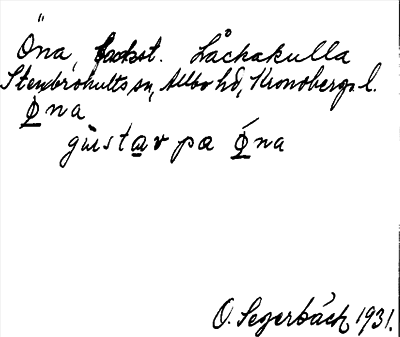 Öna, backst. Låchakulla
Stenbrohults sn, Allbo hd, Kronobergs l.
Ø̲na
gùsta̲v pa Ǿ̲na
O. Segerbäck, 1931.